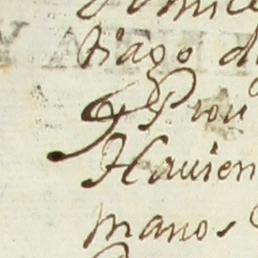 tiago d
Prou
Hauien
manos